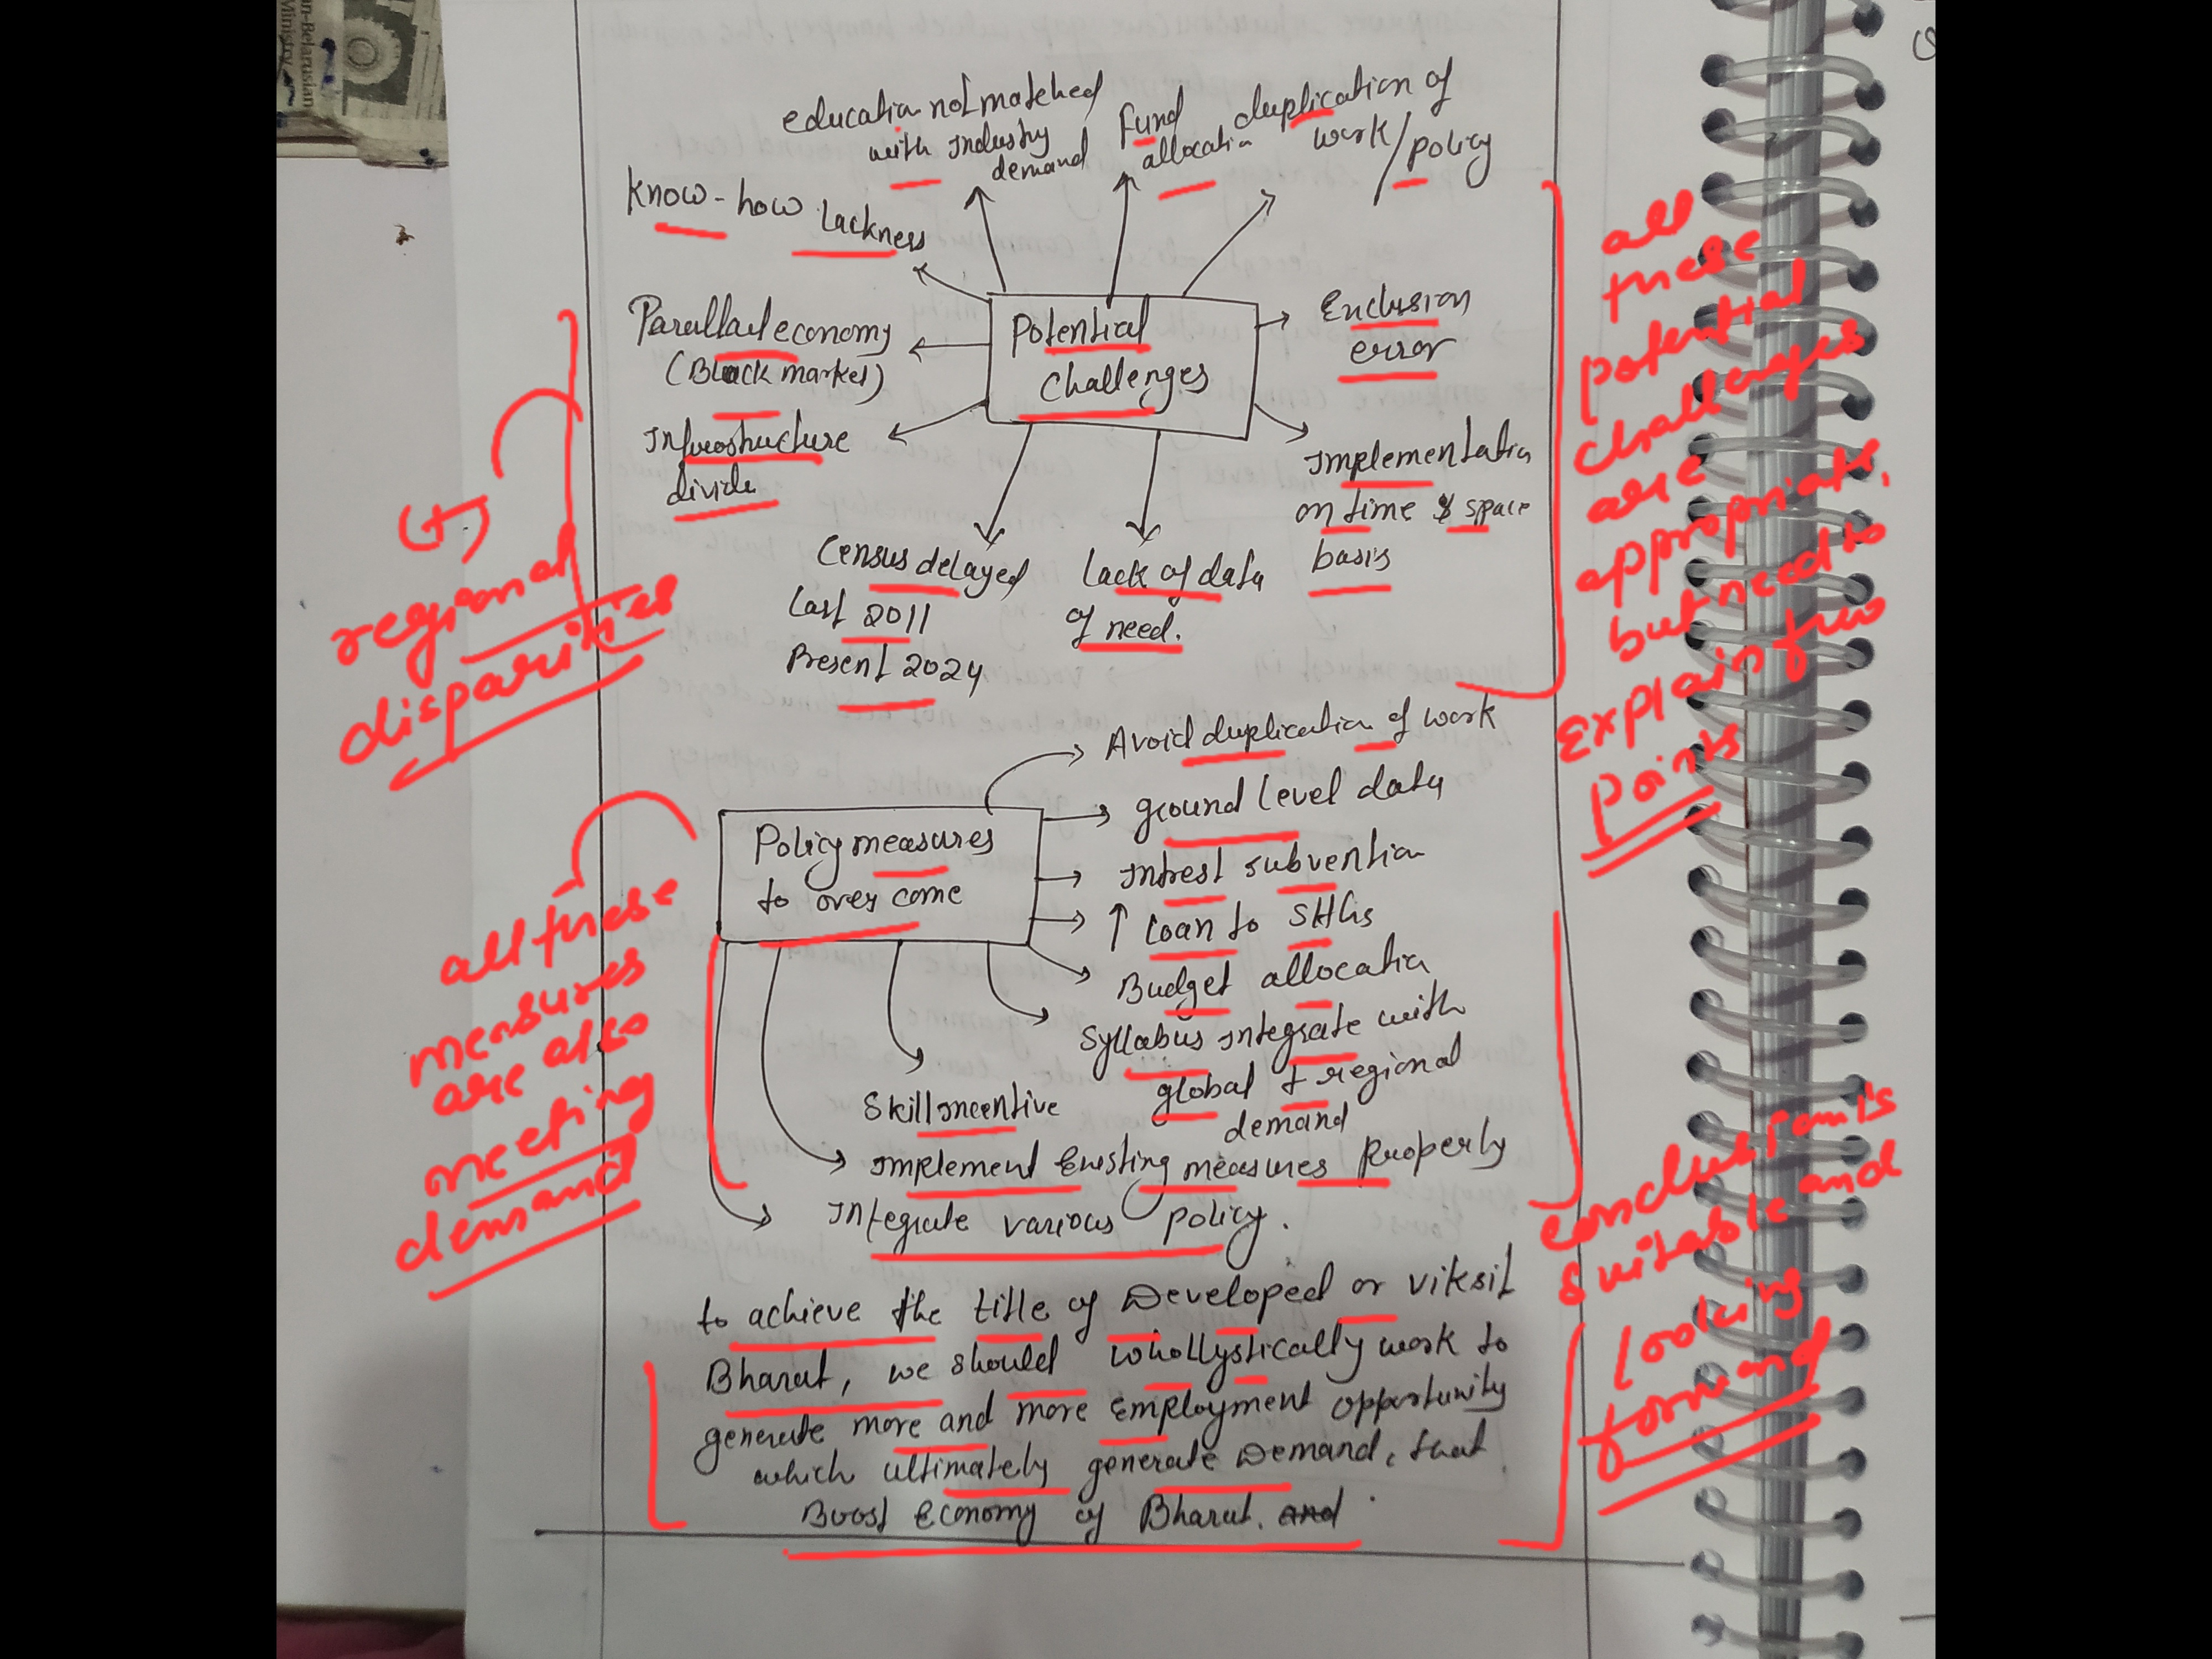 an-Belarusian
Ministry
education not matched
with Industry
demand
Fund
allocation
duplication of
work/policy
Know-how lackness
Parallael economy
(Black market)
Infrastructure
divide
Potential
challenges
Exclusion
error
Implementation
on time & space
basis
Census delayed
Last 2011
Present 2024
Lack of data
of need.
(+)
regional
disparities
all
these
potential
challenges
are
appropriate,
but need to
explain few
points
Policy measures
to over come
Avoid duplication of work
ground level data
Intrest subvention
↑ Loan to SHGs
Budget allocation
Syllabus integrate with
global & regional
demand
Skill incentive
Implement Existing measures Properly
Integrate various policy.
all these
measures
are also
meeting
demand
to achieve the title of Developed or viksit
Bharat, we should whollystically work to
generate more and more Employment opportunity
which ultimately generate Demand, that
Boost Economy of Bharat. and
suitable and
looking
forward